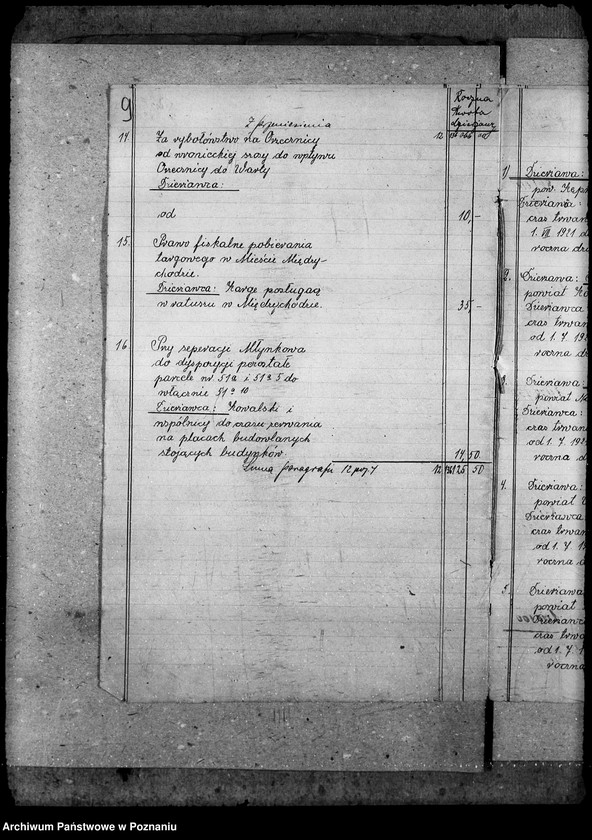 9
Roczna
kwota
dzierżawy
z przeniesienia 12
14. Za rybołówstwo na Orzecznicy
od wronieckiej szosy do wpływu
Orzecznicy do Warty
Dzierżawca:
od 10,-
15. Prawo fiskalne pobierania
targowego w Mieście Między-
chodzie.
Dzierżawca: Karge posługacz
w ratuszu w Międzychodzie. 35,-
16. Przy seperacji Młynkowa
do dyspozycji pozostałe
parcele nr. 51a i 51 do
włącznie 51a 10
Dzierżawca: Kowalski i
wspólnicy do czasu zerwania
na placach budowlanych
stojących budynków 14,50
Suma paragrafu 12 poz. 1 12 125 50
1) Dzierżawa:
pow. Kępn
Dzierżawca:
czas trwan
1. VII 1921 d
roczna dzi
2. Dzierżawa:
powiat
Dzierżawca
czas trwan
od 1. 7. 192
roczna d
3. Dzierżawa
powiat
Dzierżawca:
czas trwan
od 1. 7. 192
roczna d
4. Dzierżawa:
powiat
Dzierżawca
czas trwa
od 1. 7. 1
roczna d
5. Dzierżawa
powiat
Dzierżawca
czas trwa
od 1. 7.
roczna
Archiwum Państwowe w Poznaniu